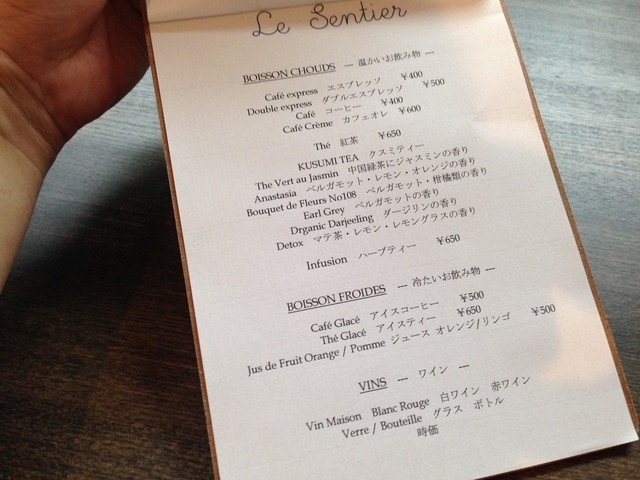 Le Sentier
BOISSON CHOUDS --- 温かいお飲み物 ---
Café express エスプレッソ ¥400
Double express ダブルエスプレッソ ¥500
Café コーヒー ¥400
Café Crème カフェオレ ¥600
Thé 紅茶 ¥650
KUSUMI TEA クスミティー
The Vert au Jasmin 中国緑茶にジャスミンの香り
Anastasia ベルガモット・レモン・オレンジの香り
Bouquet de Fleurs No108 ベルガモット・柑橘類の香り
Earl Grey ベルガモットの香り
Drganic Darjeeling ダージリンの香り
Detox マテ茶・レモン・レモングラスの香り
Infusion ハーブティー ¥650
BOISSON FROIDES --- 冷たいお飲み物 ---
Café Glacé アイスコーヒー ¥500
Thé Glacé アイスティー ¥650
Jus de Fruit Orange / Pomme ジュース オレンジ/リンゴ ¥500
VINS --- ワイン ---
Vin Maison Blanc Rouge 白ワイン 赤ワイン
Verre / Bouteille グラス ボトル
時価